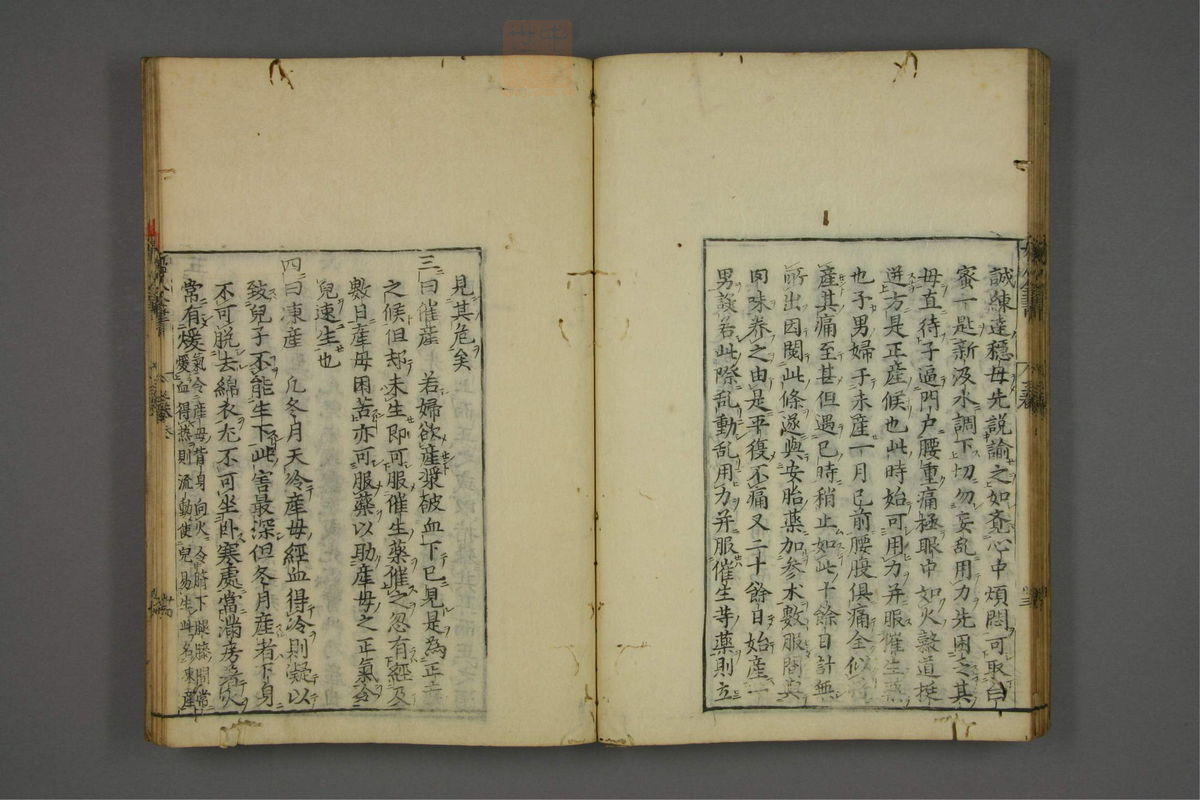 誠練達穩母先説諭之如覺心中煩悶可取白
蜜一匙新汲水調下切勿妄乱用力先困乏其
母直待子逼門户腰重痛極眼中如火穀道挺
迸方是正産候也此時始可用力并服催生薬
也予男婦于未産一月已前腰腹俱痛全似將
産其痛至甚但遇已時稍止如此十餘日計無
所出因閲此條遂與安胎薬加参术數服間其
同味养之由是平復不痛又二十餘日始産一
男設若此際乱動乱用力并服催生等藥則立
見其危矣
三曰催産 若婦欲産漿破血下已見是為正産
之候但却未生即可服催生藥催之忽有經及
數日産母困苦亦可服藥以助産母之正氣令
兒速生也
四曰凍産 凡冬月天冷産母經血得冷則凝以
致兒子不能生下此害最深但冬月産者下身
不可脱去綿衣尤不可坐卧寒處當滿房着火
常有煖氣令産母背身向火令臍下腿膝間常
煖血得熱則流動使兒易生此名凍産